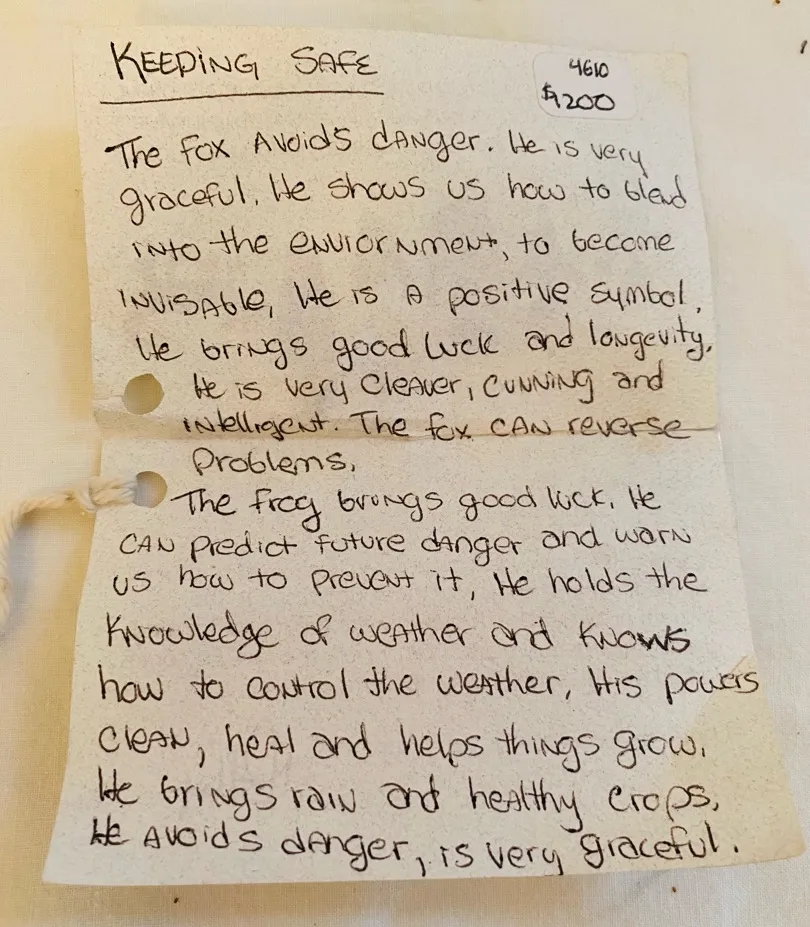 KEEPING SAFE
4610
$9200
The fox Avoids dANger. He is very
graceful. He shows us how to blend
iNto the eNviorNment, to become
iNvisAble, He is A positive symbol.
He briNgs good luck and longevity,
He is very CleAver, CUNNiNG and
iNtelligent. The fox CAN reverse
Problems,
The frog brungs good luck. He
CAN Predict future dANger and warN
us how to prevent it, He holds the
KNowledge of weAther and KNows
how to coNtrol the weAther, His powers
CleAN, heal and helps things grow.
He briNgs raiN and heAlthy crops,
He Avoids dANger, is very graceful.